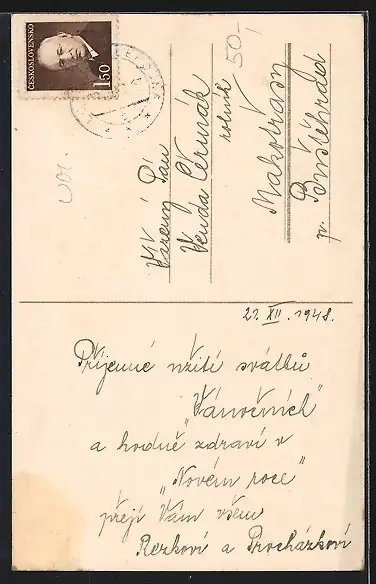 ČESKOSLOVENSKO
1.50
50,-
Vážený Pán
Venda Čermák
rolník
Makotřasy
p. Buštěhrad
21. XII. 1948.
Příjemné užití svátků
„Vánočních"
a hodně zdraví v
„Novém roce"
přejí Vám všem
Rezkovi a Procházkovi